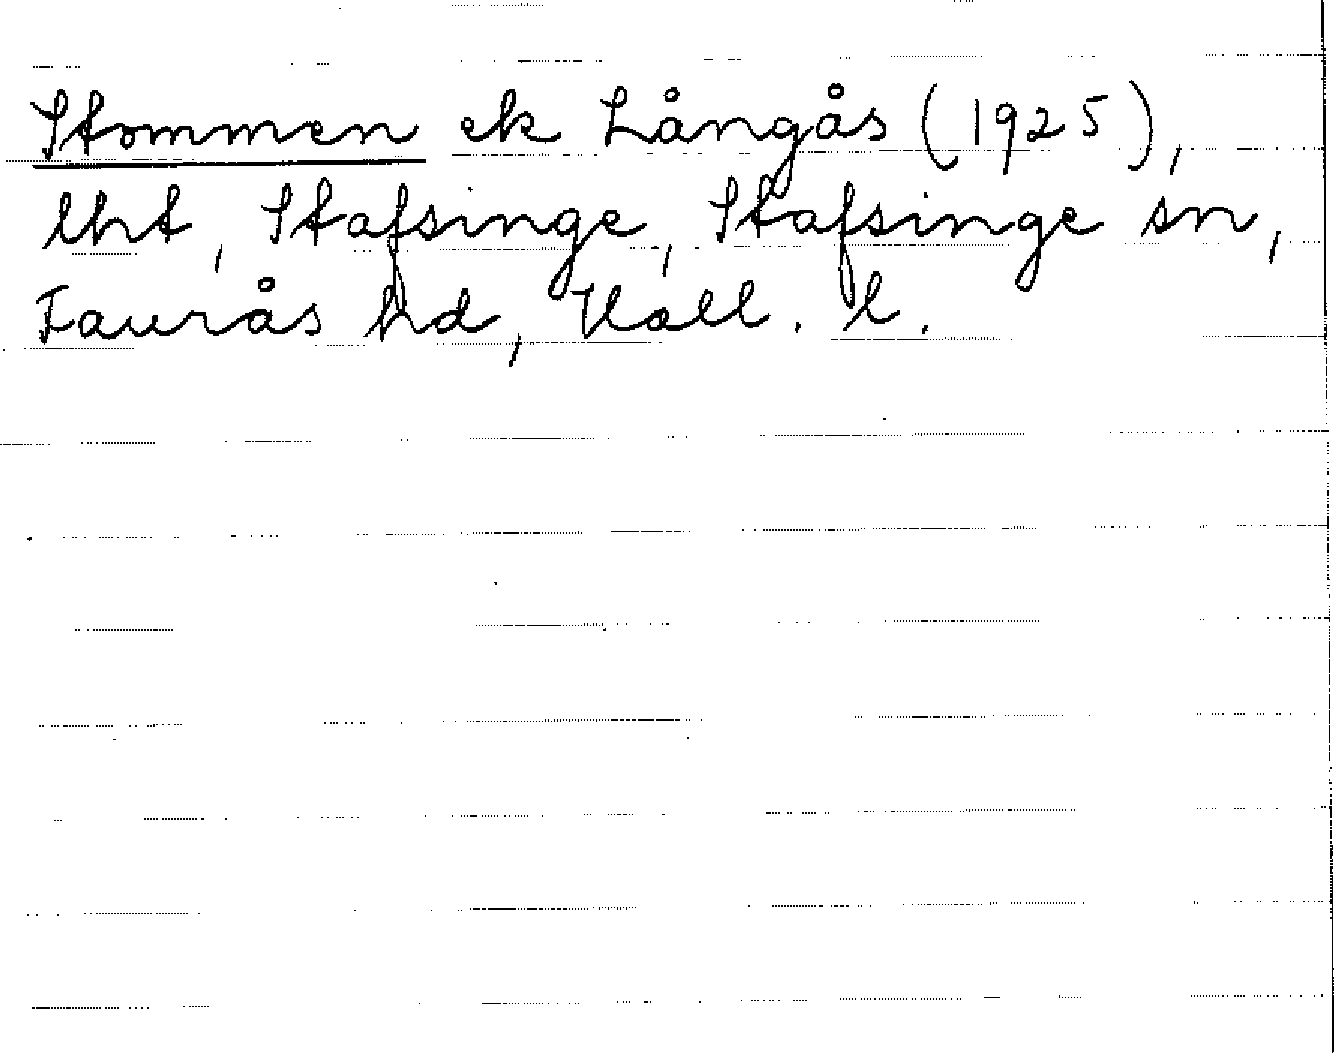 Stommen ek Långås (1925),
lht, Stafsinge, Stafsinge sn,
Faurås hd, Hall. l.